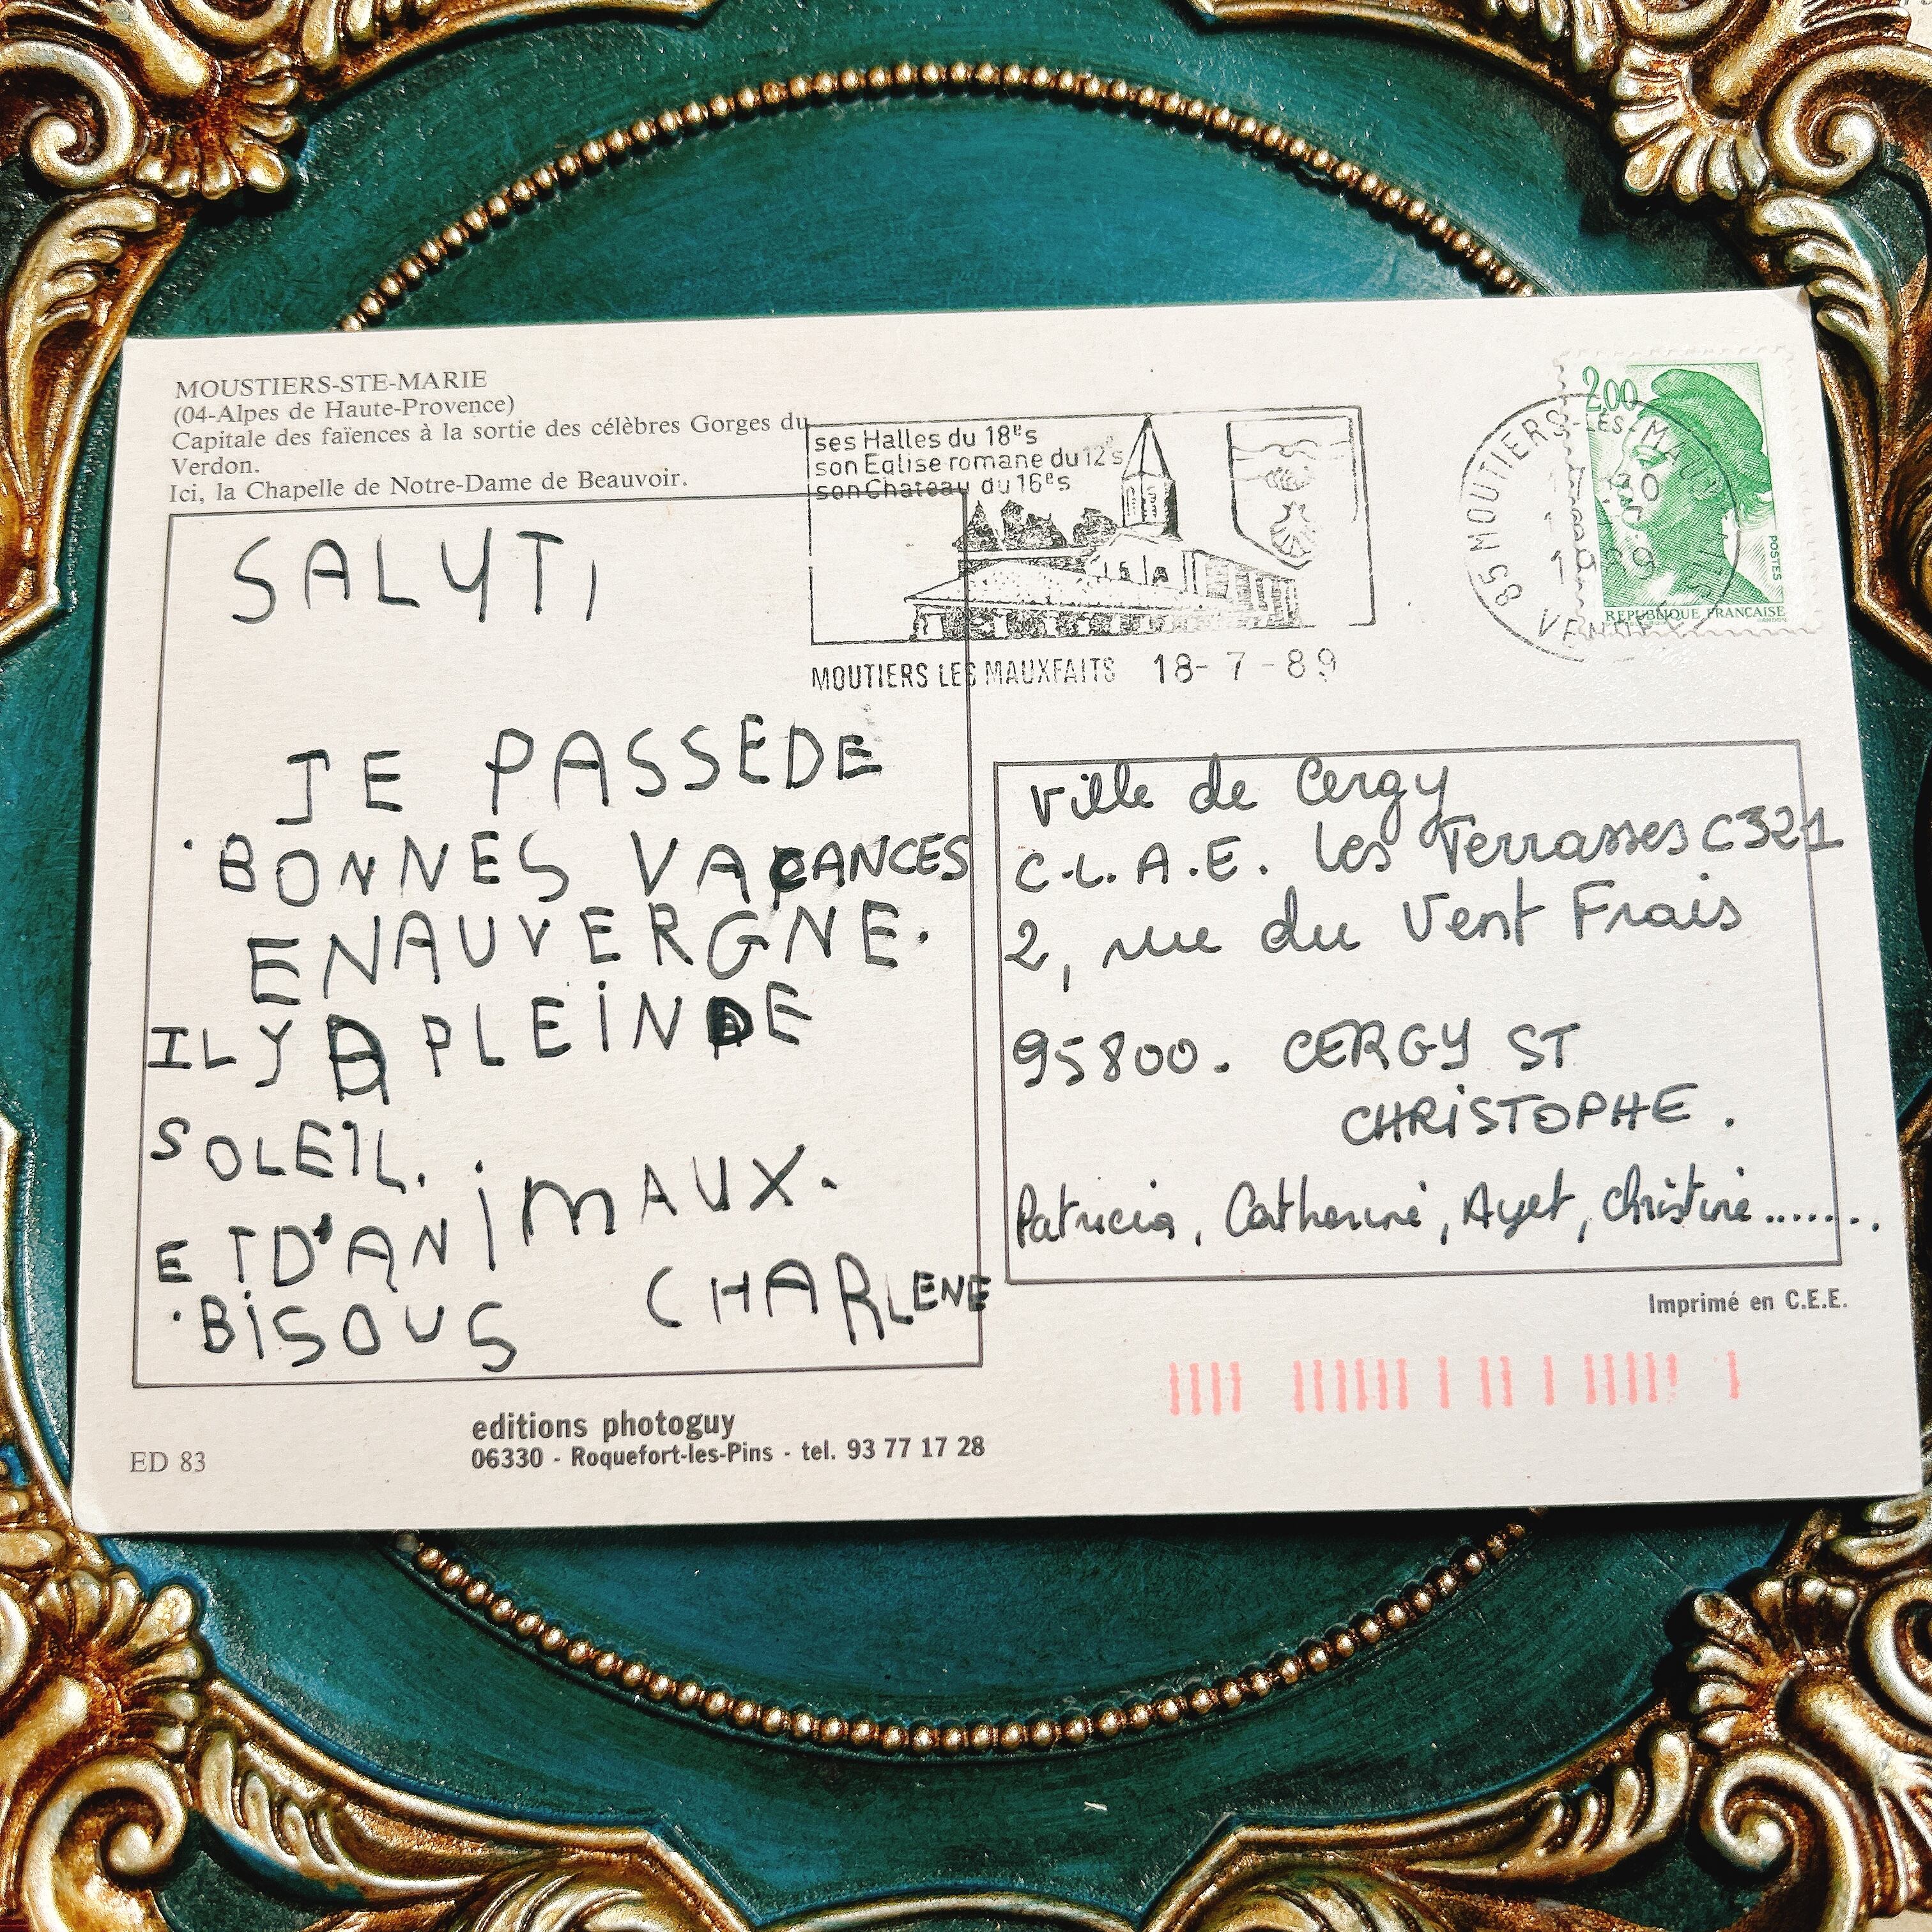 MOUSTIERS-STE-MARIE
(04-Alpes de Haute-Provence)
Capitale des faïences à la sortie des célèbres Gorges du
Verdon.
Ici, la Chapelle de Notre-Dame de Beauvoir.
ses Halles du 18e s
son Eglise romane du 12e s
son Chateau du 16e s
MOUTIERS LES MAUXFAITS 18-7-89
85 MOUTIERS-LES-MAUXFAITS
VENDEE
2,00
POSTES
REPUBLIQUE FRANÇAISE
SALUT,
JE PASSE DE
BONNES VACANCES
EN AUVERGNE.
IL Y A PLEIN DE
SOLEIL.
ET D'ANIMAUX.
BISOUS CHARLENE
Ville de Cergy
C.L.A.E. Les Terrasses C321
2, rue du Vent Frais
95800. CERGY ST
CHRISTOPHE.
Patricia, Catherine, Ayet, Christine.......
Imprimé en C.E.E.
ED 83
editions photoguy
06330 - Roquefort-les-Pins - tel. 93 77 17 28